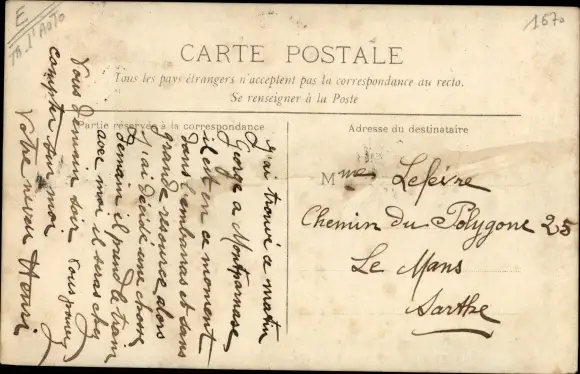 E
Th. l'Auto
1670
CARTE POSTALE
Tous les pays étrangers n'acceptent pas la correspondance au recto.
Se renseigner à la Poste
Partie réservée à la correspondance
Adresse du destinataire
J'ai trouvé ce matin
George a Montparnasse
il est en ce moment
dans l'embarras et sans
grande ressource alors
j'ai décidé une chose
Demain il prend le train
avec moi il seras chez
Vous demain soir vous pouvez
compter sur moi
Votre neveu Henri
Mme Lefèvre
Chemin du Polygone 25
Le Mans
Sarthe